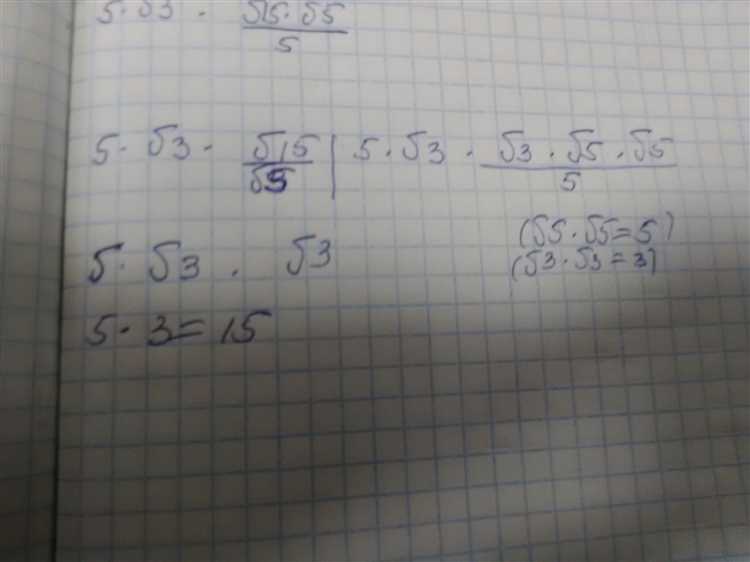 5 · √3 · √15 · √5 / 5
5 · √3 · √15 / √5 | 5 · √3 · √3 · √5 · √5 / 5
(√5 · √5 = 5)
5 · √3 · √3
(√3 · √3 = 3)
5 · 3 = 15